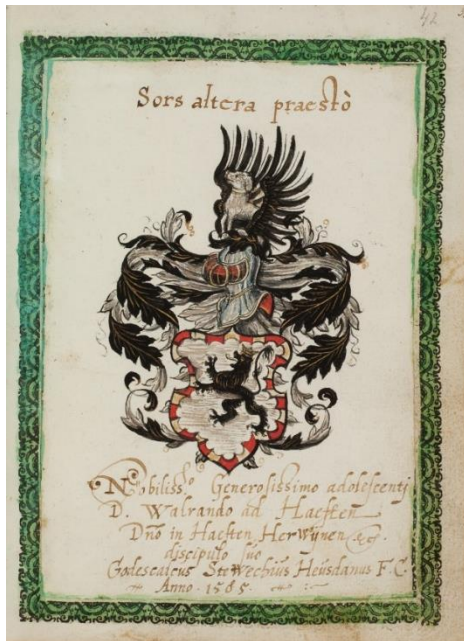 42
Sors altera praestò
Nobiliss.o Generosissimo adolescentj
D. Walrando ad Haeften
Dño in Haeften Herwijnen &c.
discipulo suo
Godescalcus Stewechius Heusdanus F. C.
Anno . 1585.